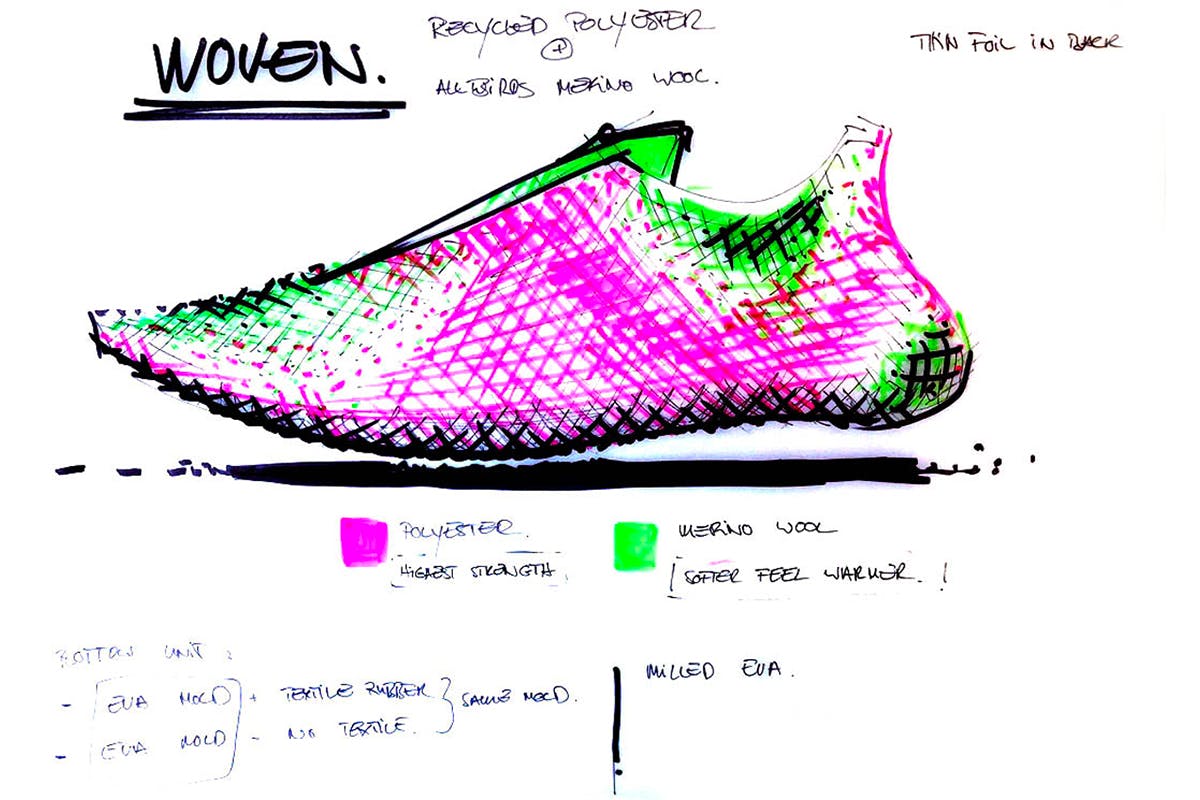 WOVEN.
RECYCLED POLYESTER
+
ALLBIRDS MERINO WOOL.
THIN FOIL IN BACK
POLYESTER.
HIGHEST STRENGTH
MERINO WOOL
SOFTER FEEL WARMER. !
BOTTOM UNIT :
- EVA MOLD + TEXTILE RUBBER
- EVA MOLD - NO TEXTILE.
SAME MOLD.
MILLED EVA.